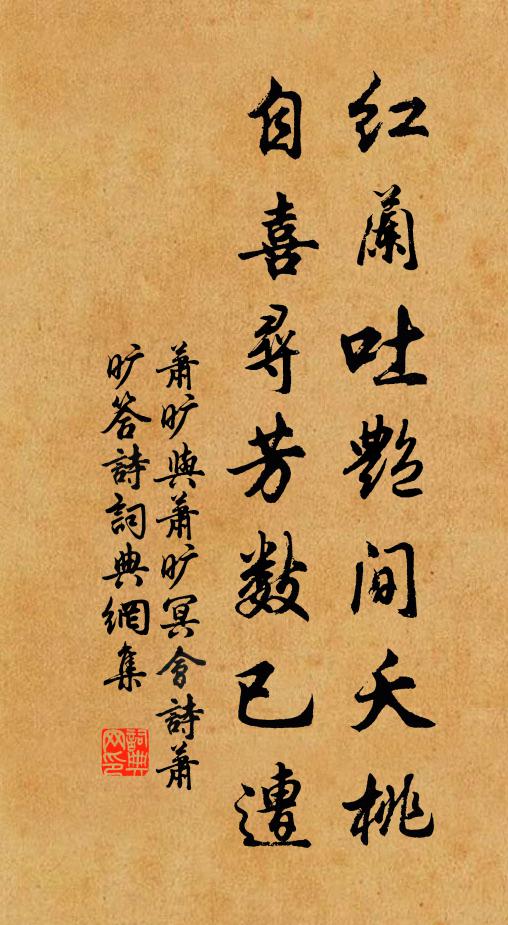 红蘭吐艷間夭桃
自喜尋芳數已遭
蕭旷與蕭旷冥會詩蕭
旷答詩詞典網集
詞典
网印